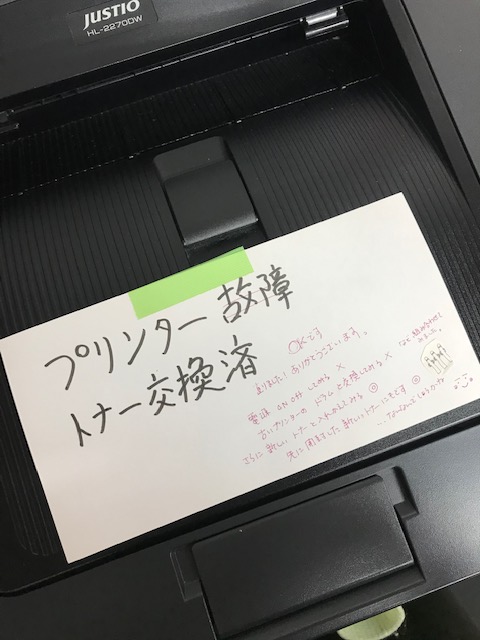 JUSTIO
HL-2270DW
プリンター故障
トナー交換済
OKです
ありがとうございます。
電源 ON OFF してみる ×
古いプリンターの ドラムと交換してみる ×
さらに 新しい トナーと入れかえてみる ◎
先に 新しいトナーにもどす ◎